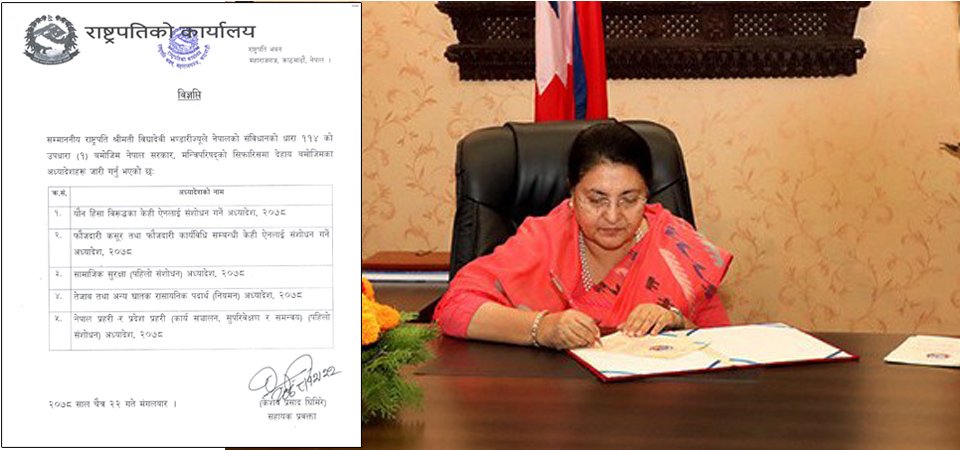 राष्ट्रपतिको कार्यालय
राष्ट्रपति भवन
महाराजगंज, काठमाडौं, नेपाल ।
विज्ञप्ति
सम्माननीय राष्ट्रपति श्रीमती विद्यादेवी भण्डारीज्यूले नेपालको संविधानको धारा ११४ को
उपधारा (१) बमोजिम नेपाल सरकार, मन्त्रिपरिषद्को सिफारिसमा देहाय बमोजिमका
अध्यादेशहरू जारी गर्नु भएको छः
क्र.सं. अध्यादेशको नाम
१. यौन हिंसा विरूद्धका केही ऐनलाई संशोधन गर्ने अध्यादेश, २०७८
२. फौजदारी कसूर तथा फौजदारी कार्यविधि सम्बन्धी केही ऐनलाई संशोधन गर्ने
अध्यादेश, २०७८
३. सामाजिक सुरक्षा (पहिलो संशोधन) अध्यादेश, २०७८
४. तेजाब तथा अन्य घातक रासायनिक पदार्थ (नियमन) अध्यादेश, २०७८
५. नेपाल प्रहरी र प्रदेश प्रहरी (कार्य सञ्चालन, सुपरिवेक्षण र समन्वय) (पहिलो
संशोधन) अध्यादेश, २०७८
२०७८ साल चैत्र २२ गते मंगलवार ।
(केशव प्रसाद घिमिरे)
सहायक प्रवक्ता